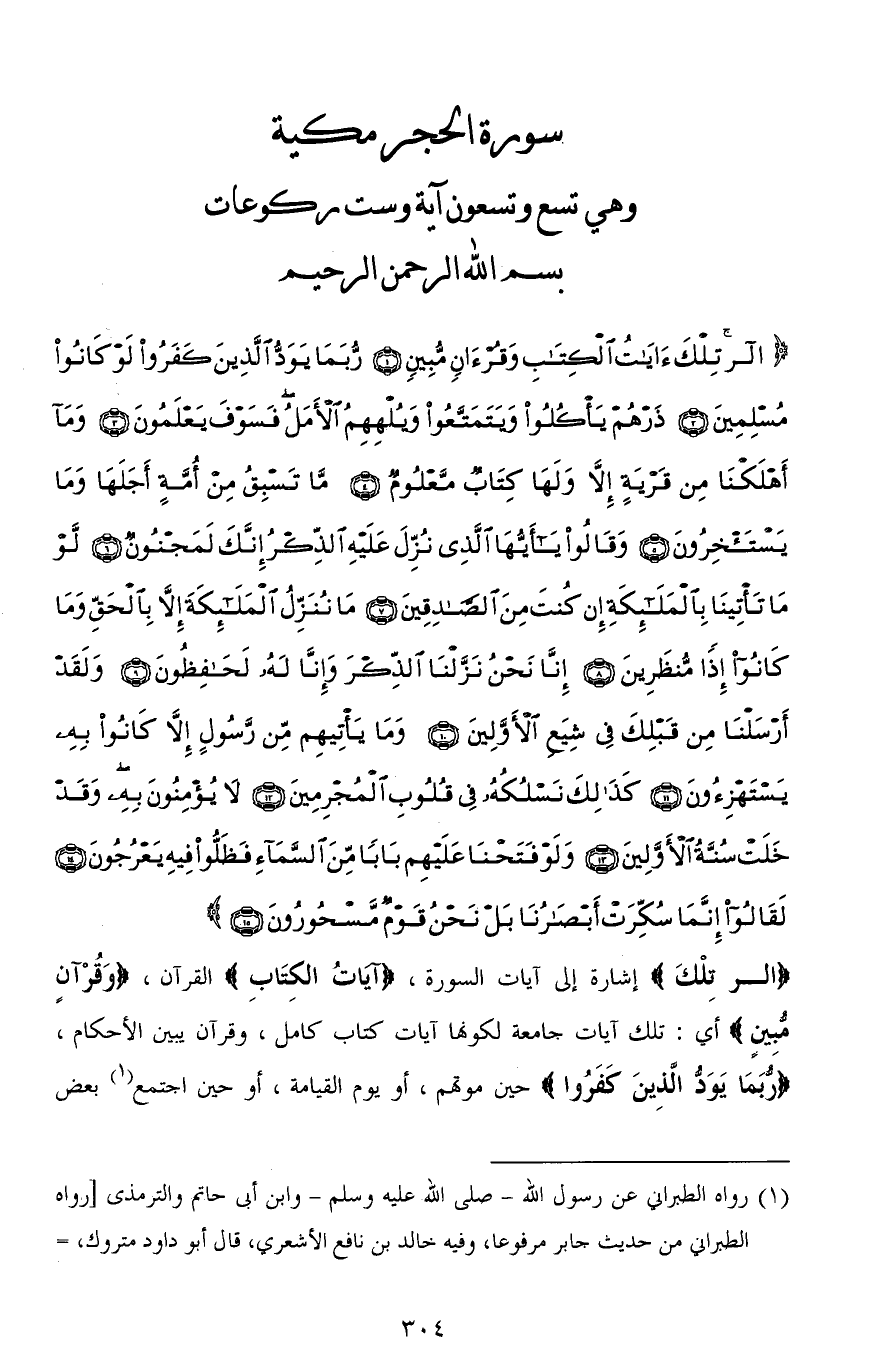 سورة الحجر مكية
وهي تسع وتسعون آية وست ركوعات
بسم الله الرحمن الرحيم
﴿ الٓرۚ تِلْكَ ءَايَٰتُ ٱلْكِتَٰبِ وَقُرْءَانٍ مُّبِينٍ ۝١ رُّبَمَا يَوَدُّ ٱلَّذِينَ كَفَرُوا۟ لَوْ كَانُوا۟
مُسْلِمِينَ ۝٢ ذَرْهُمْ يَأْكُلُوا۟ وَيَتَمَتَّعُوا۟ وَيُلْهِهِمُ ٱلْأَمَلُۖ فَسَوْفَ يَعْلَمُونَ ۝٣ وَمَآ
أَهْلَكْنَا مِن قَرْيَةٍ إِلَّا وَلَهَا كِتَابٌ مَّعْلُومٌ ۝٤ مَّا تَسْبِقُ مِنْ أُمَّةٍ أَجَلَهَا وَمَا
يَسْتَـْٔخِرُونَ ۝٥ وَقَالُوا۟ يَٰٓأَيُّهَا ٱلَّذِى نُزِّلَ عَلَيْهِ ٱلذِّكْرُ إِنَّكَ لَمَجْنُونٌ ۝٦ لَّوْ
مَا تَأْتِينَا بِٱلْمَلَٰٓئِكَةِ إِن كُنتَ مِنَ ٱلصَّٰدِقِينَ ۝٧ مَا نُنَزِّلُ ٱلْمَلَٰٓئِكَةَ إِلَّا بِٱلْحَقِّ وَمَا
كَانُوٓا۟ إِذًا مُّنظَرِينَ ۝٨ إِنَّا نَحْنُ نَزَّلْنَا ٱلذِّكْرَ وَإِنَّا لَهُۥ لَحَٰفِظُونَ ۝٩ وَلَقَدْ
أَرْسَلْنَا مِن قَبْلِكَ فِى شِيَعِ ٱلْأَوَّلِينَ ۝١٠ وَمَا يَأْتِيهِم مِّن رَّسُولٍ إِلَّا كَانُوا۟ بِهِۦ
يَسْتَهْزِءُونَ ۝١١ كَذَٰلِكَ نَسْلُكُهُۥ فِى قُلُوبِ ٱلْمُجْرِمِينَ ۝١٢ لَا يُؤْمِنُونَ بِهِۦۖ وَقَدْ
خَلَتْ سُنَّةُ ٱلْأَوَّلِينَ ۝١٣ وَلَوْ فَتَحْنَا عَلَيْهِم بَابًا مِّنَ ٱلسَّمَآءِ فَظَلُّوا۟ فِيهِ يَعْرُجُونَ ۝١٤
لَقَالُوٓا۟ إِنَّمَا سُكِّرَتْ أَبْصَٰرُنَا بَلْ نَحْنُ قَوْمٌ مَّسْحُورُونَ ۝١٥ ﴾
﴿الــر تِلْكَ ﴾ إشارة إلى آيات السورة ، ﴿آيَاتُ الكِتَابِ ﴾ القرآن ، ﴿وَقُرْآنٍ
مُّبِينٍ ﴾ أي : تلك آيات جامعة لكونها آيات كتاب كامل ، وقرآن يبين الأحكام ،
﴿رُّبَمَا يَوَدُّ الَّذِينَ كَفَرُوا ﴾ حين موتهم ، أو يوم القيامة ، أو حين اجتمع(١) بعض
(١) رواه الطبراني عن رسول الله – صلى الله عليه وسلم – وابن أبى حاتم والترمذى [رواه
الطبراني من حديث جابر مرفوعا، وفيه خالد بن نافع الأشعري، قال أبو داود متروك، =
٣٠٤